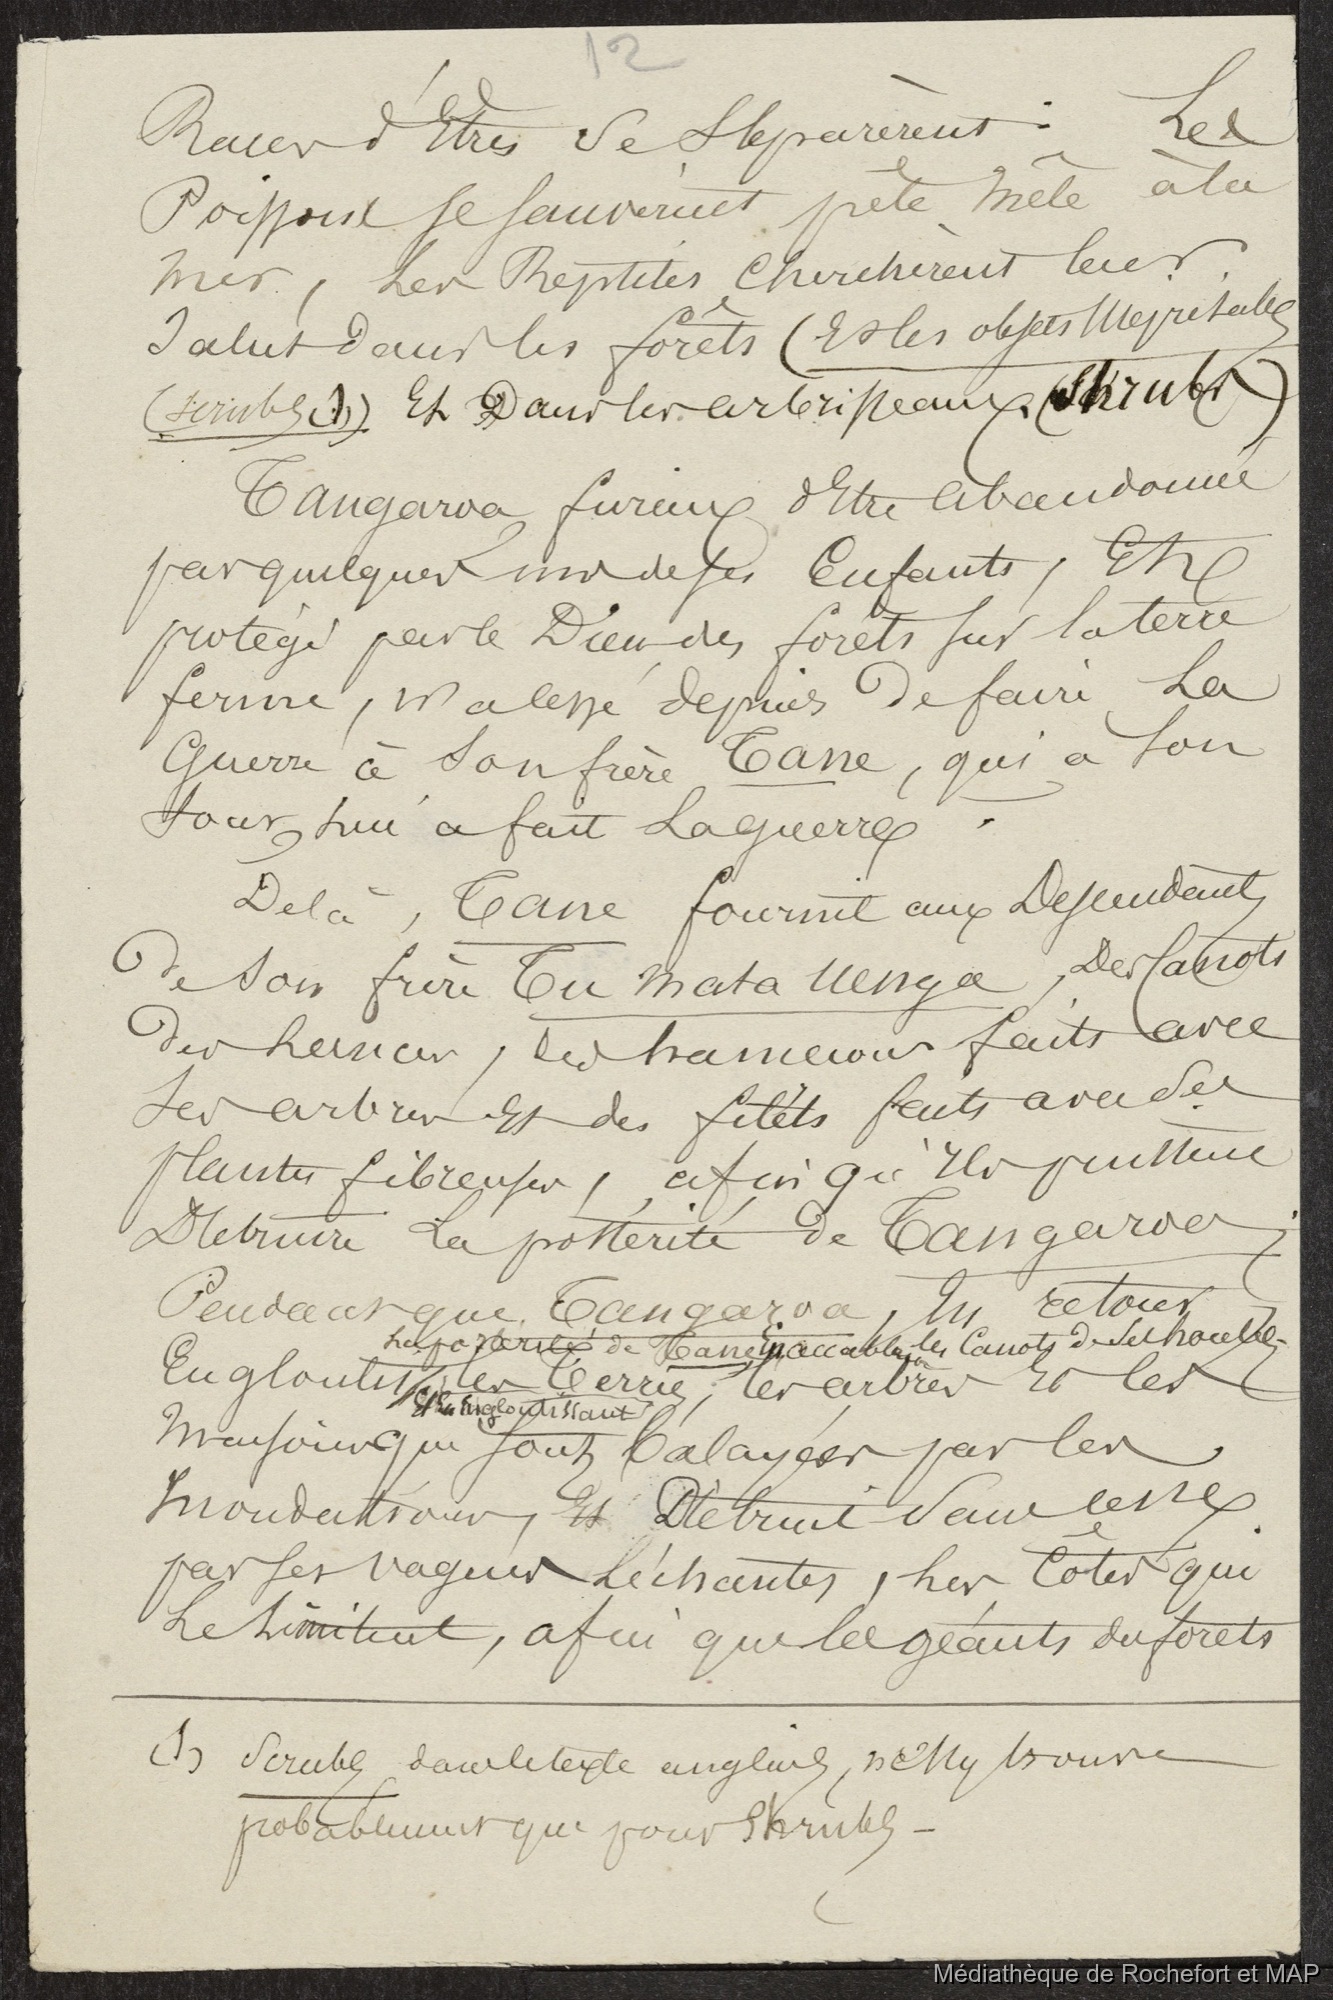 12
Races d'Etres se Séparèrent : Les
Poissons se sauvèrent pêle mêle à la
mer, Les Reptiles cherchèrent leur
Salut dans les forêts (Et les objets Méprisables
(scrubs (1)) Et Dans les arbrisseaux. (Shrubs)
Tangaroa furieux d'Etre abandonné
par quelques uns de ses Enfants, Etre
protégé par le Dieu des forêts sur la terre
ferme, n'a cessé depuis De faire La
Guerre à Son frère Tane, qui à son
tour, lui a fait La guerre.
De là, Tane fournit aux Descendants
De Son frère Tu mata uenga, Des Canots
Des lances, des hameçons faits avec
Ses arbres Et des filets faits avec Ses
plantes fibreuses, afin qu'ils puissent
Détruire La postérité de Tangaroa ;
Pendant que Tangaroa, En retour
La postérité de Tane, En accable les Canots de Ses houles
Engloutit les Terres, les arbres Et les
Et En Engloutissant
Maisons qui sont balayées par les
Inondations, Et Détruit Sans cesse
par ses vagues Léchantes, Les Côtes qui
Le limitent, afin que les géants des forets
(1) Scrubs dans le texte anglais, n'est là trouve
probablement que pour Shrubs -
Médiathèque de Rochefort et MAP